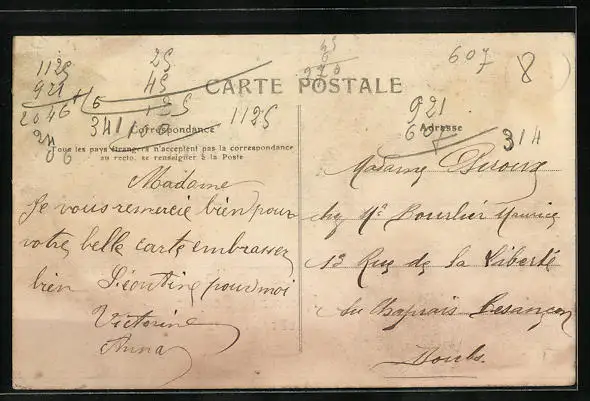 1125
921
2046
6
341
20
06
25
45
125
1125
45
6
270
607
8
921
607
314
CARTE POSTALE
Correspondance
Tous les pays étrangers n'acceptent pas la correspondance
au recto, se renseigner à la Poste
Adresse
Madame
Je vous remercie bien pour
votre belle carte embrasser
bien Léontine pour moi
Victorine
Anna
Madame
chez Mr Bourlier Maurice
13 Rue de la Liberté
Au Chaprais Besançon
Doubs.